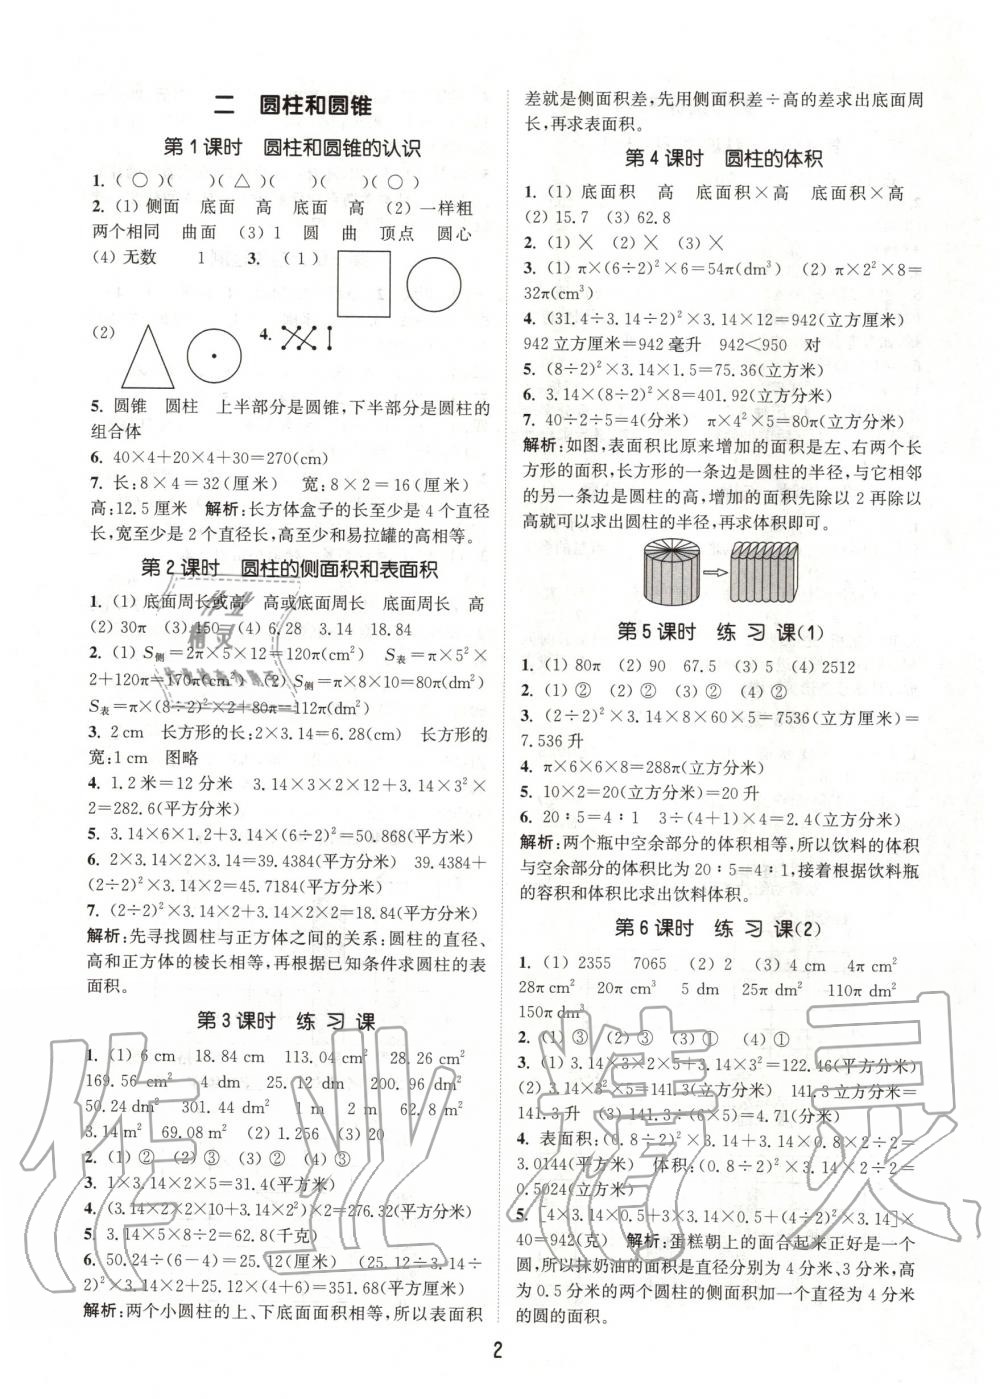 二 圆柱和圆锥
第1课时 圆柱和圆锥的认识
1. (○)( )(△)( )( )(○)
2. (1) 侧面 底面 高 底面 高 (2) 一样粗
两个相同 曲面 (3) 1 圆 曲 顶点 圆心
(4) 无数 1 3. (1)
(2) 4.
5. 圆锥 圆柱 上半部分是圆锥,下半部分是圆柱的
组合体
6. 40×4+20×4+30=270(cm)
7. 长:8×4=32(厘米) 宽:8×2=16(厘米)
高:12.5厘米 解析:长方体盒子的长至少是4个直径
长,宽至少是2个直径长,高至少和易拉罐的高相等。
第2课时 圆柱的侧面积和表面积
1. (1) 底面周长或高 高或底面周长 底面周长 高
(2) 30π (3) 150 (4) 6.28 3.14 18.84
2. (1) S侧=2π×5×12=120π(cm²) S表=π×5²×
2+120π=170π(cm²) (2) S侧=π×8×10=80π(dm²)
S表=π×(8÷2)²×2+80π=112π(dm²)
3. 2 cm 长方形的长:2×3.14=6.28(cm) 长方形的
宽:1 cm 图略
4. 1.2米=12分米 3.14×3×2×12+3.14×3²×
2=282.6(平方分米)
5. 3.14×6×1.2+3.14×(6÷2)²=50.868(平方米)
6. 2×3.14×2×3.14=39.4384(平方分米) 39.4384+
(2÷2)²×3.14×2=45.7184(平方分米)
7. (2÷2)²×3.14×2+3.14×2×2=18.84(平方分米)
解析:先寻找圆柱与正方体之间的关系:圆柱的直径、
高和正方体的棱长相等,再根据已知条件求圆柱的表
面积。
第3课时 练习课
1. (1) 6 cm 18.84 cm 113.04 cm² 28.26 cm²
169.56 cm² 4 dm 25.12 dm 200.96 dm²
50.24 dm² 301.44 dm² 1 m 2 m 62.8 m²
3.14 m² 69.08 m² (2) 1.256 (3) 20
2. (1) ② (2) ③ (3) ② (4) ③
3. 1×3.14×2×5=31.4(平方米)
4. (3.14×2×2×10+3.14×2²)×2=276.32(平方米)
5. 3.14×5×8÷2=62.8(千克)
6. 50.24÷(6-4)=25.12(厘米) (25.12÷3.14÷
2)²×3.14×2+25.12×(4+6)=351.68(平方厘米)
解析:两个小圆柱的上、下底面面积相等,所以表面积
差就是侧面积差,先用侧面积差÷高的差求出底面周
长,再求表面积。
第4课时 圆柱的体积
1. (1) 底面积 高 底面积×高 底面积×高
(2) 15.7 (3) 62.8
2. (1) × (2) × (3) ×
3. (1) π×(6÷2)²×6=54π(dm³) (2) π×2²×8=
32π(cm³)
4. (31.4÷3.14÷2)²×3.14×12=942(立方厘米)
942立方厘米=942毫升 942<950 对
5. (8÷2)²×3.14×1.5=75.36(立方米)
6. 3.14×(8÷2)²×8=401.92(立方分米)
7. 40÷2÷5=4(分米) π×4²×5=80π(立方分米)
解析:如图,表面积比原来增加的面积是左、右两个长
方形的面积,长方形的一条边是圆柱的半径,与它相邻
的另一条边是圆柱的高,增加的面积先除以2再除以
高就可以求出圆柱的半径,再求体积即可。
第5课时 练习课(1)
1. (1) 80π (2) 90 67.5 (3) 5 (4) 2512
2. (1) ② (2) ② (3) ② (4) ②
3. (2÷2)²×3.14×8×60×5=7536(立方厘米)=
7.536升
4. π×6×6×8=288π(立方分米)
5. 10×2=20(立方分米)=20升
6. 20∶5=4∶1 3÷(4+1)×4=2.4(立方分米)
解析:两个瓶中空余部分的体积相等,所以饮料的体积
与空余部分的体积比为20∶5=4∶1,接着根据饮料瓶
的容积和体积比求出饮料体积。
第6课时 练习课(2)
1. (1) 2355 7065 (2) 2 (3) 4 cm 4π cm²
28π cm² 20π cm³ 5 dm 25π dm² 110π dm²
150π dm³
2. (1) ③ (2) ③ (3) ① (4) ①
3. (1) 3.14×3×2×5+3.14×3²=122.46(平方分米)
(2) 3.14×3²×5=141.3(立方分米) 141.3立方分米=
141.3升 (3) 141.3÷(6×5)=4.71(分米)
4. 表面积:(0.8÷2)²×3.14+3.14×0.8×2÷2=
3.0144(平方米) 体积:(0.8÷2)²×3.14×2÷2=
0.5024(立方米)
5. [4×3.14×0.5+3×3.14×0.5+(4÷2)²×3.14]×
40=942(克) 解析:蛋糕朝上的面合起来正好是一个
圆,所以抹奶油的面积是直径分别为4分米、3分米,高
为0.5分米的两个圆柱的侧面积加一个直径为4分米
的圆的面积。
2
作业精灵